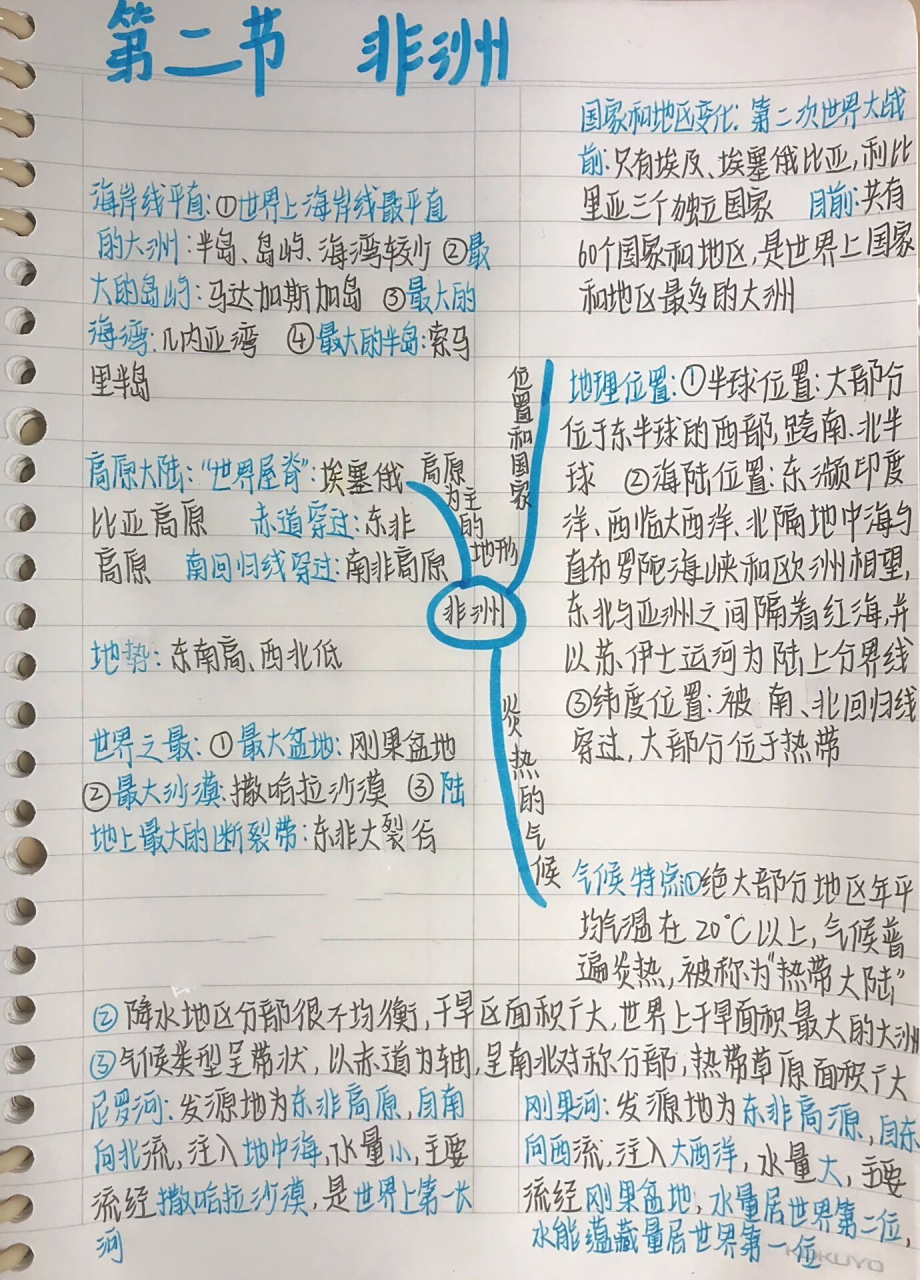 第二节 非洲
国家和地区变化：第二次世界大战
前：只有埃及、埃塞俄比亚，利比
里亚三个独立国家 目前：共有
60个国家和地区，是世界上国家
和地区最多的大洲
海岸线平直：①世界上海岸线最平直
的大洲：半岛、岛屿、海湾较少 ②最
大的岛屿：马达加斯加岛 ③最大的
海湾：几内亚湾 ④最大的半岛：索马
里半岛
位置和国家
地理位置：①半球位置：大部分
位于东半球的西部，跨南、北半
球 ②海陆位置：东濒印度
洋、西临大西洋、北隔地中海与
直布罗陀海峡和欧洲相望，
东北与亚洲之间隔着红海，并
以苏伊士运河为陆上分界线
③纬度位置：被南、北回归线
穿过，大部分位于热带
高原为主的地形
高原大陆：“世界屋脊”：埃塞俄
比亚高原 赤道穿过：东非
高原 南回归线穿过：南非高原
非洲
地势：东南高、西北低
世界之最：①最大盆地：刚果盆地
②最大沙漠：撒哈拉沙漠 ③陆
地上最大的断裂带：东非大裂谷
炎热的气候
气候特点①绝大部分地区年平
均气温在20℃以上，气候普
遍炎热，被称为“热带大陆”
②降水地区分部很不均衡，干旱区面积广大，世界上干旱面积最大的大洲
③气候类型呈带状，以赤道为轴，呈南北对称分部，热带草原面积广大
尼罗河：发源地为东非高原，自南
向北流，注入地中海，水量小，主要
流经撒哈拉沙漠，是世界上第一大
河
刚果河：发源地为东非高源，自东
向西流，注入大西洋，水量大，主要
流经刚果盆地，水量居世界第二位，
水能蕴藏量居世界第一位
KOKUYO